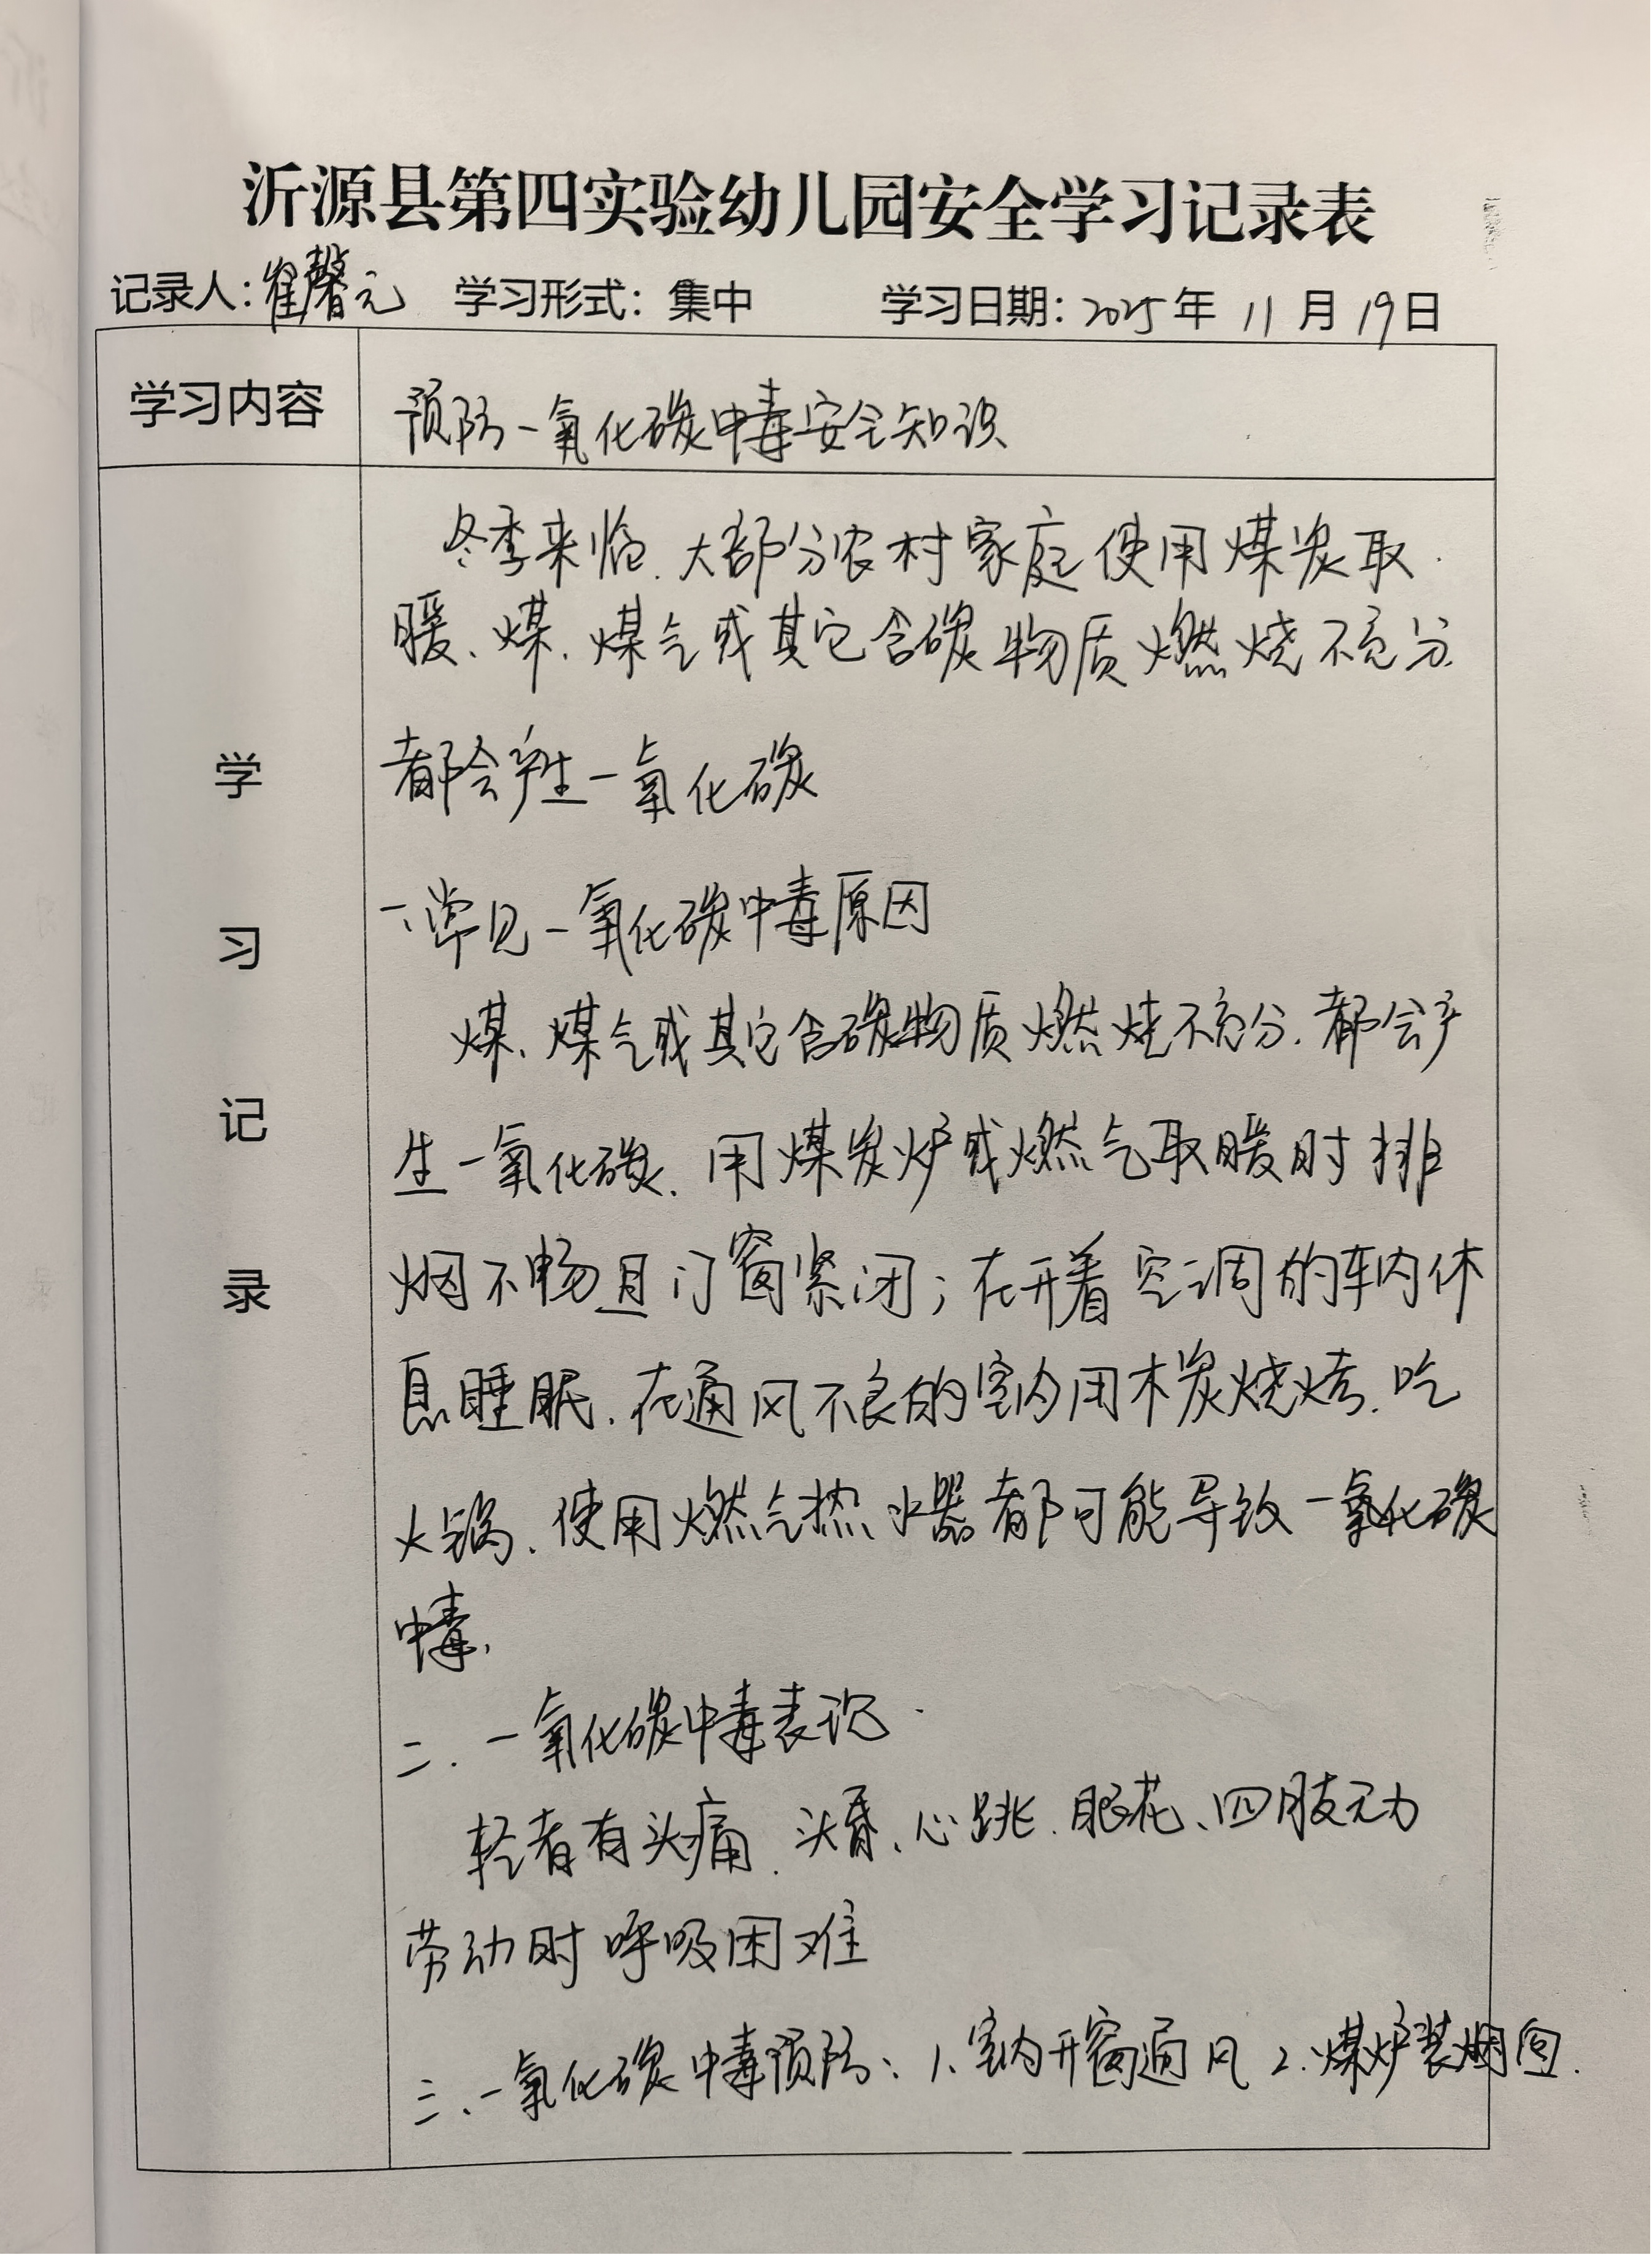 沂源县第四实验幼儿园安全学习记录表
记录人：崔馨元 学习形式：集中 学习日期：2025年 11月 19日
学习内容
预防一氧化碳中毒安全知识
学习记录
冬季来临、大部分农村家庭使用煤炭取
暖、煤、煤气或其它含碳物质燃烧不充分
都会产生一氧化碳
一、常见一氧化碳中毒原因
煤、煤气或其它含碳物质燃烧不充分、都会产
生一氧化碳、用煤炭炉或燃气取暖时排
烟不畅且门窗紧闭；在开着空调的车内休
息睡眠、在通风不良的室内用木炭烧烤、吃
火锅、使用燃气热水器都可能导致一氧化碳
中毒、
二、一氧化碳中毒表现
轻者有头痛、头昏、心跳、眼花、四肢无力
劳动时呼吸困难
三、一氧化碳中毒预防：1、室内开窗通风 2、煤炉装烟囱、